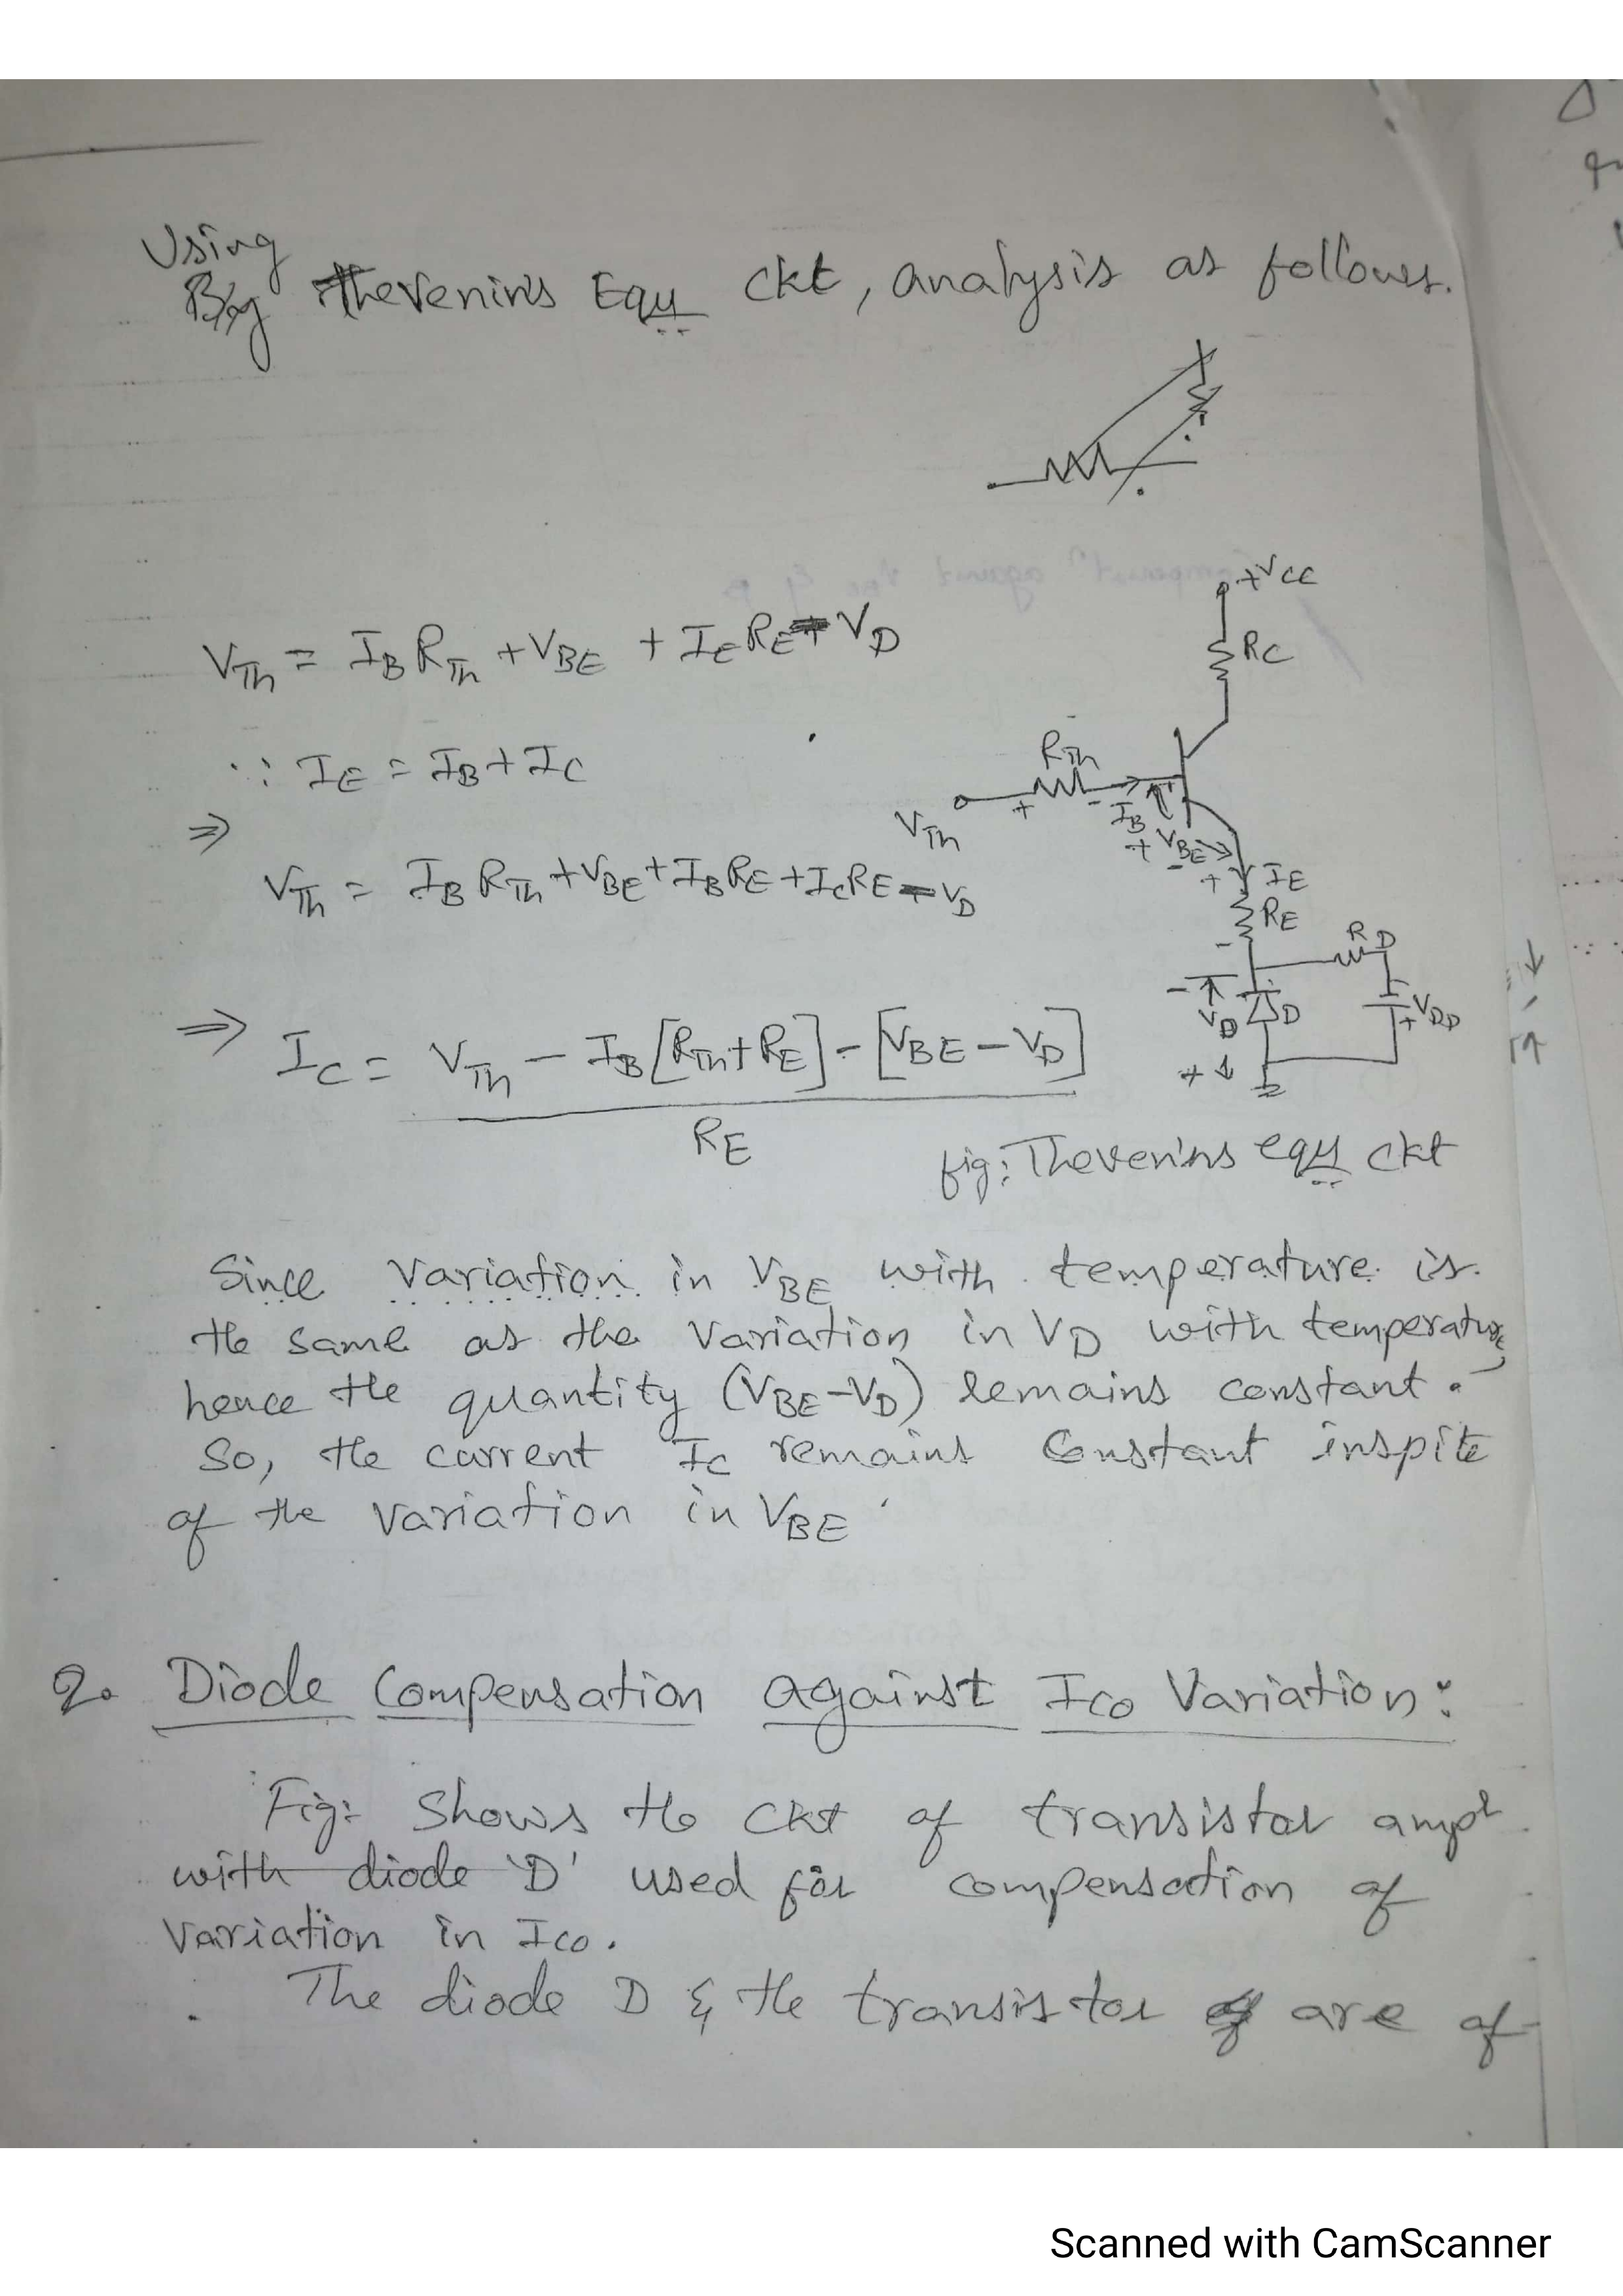 Using
By Thevenin's Equ ckt, analysis as follows.
V_Th = I_B R_Th + V_BE + I_E R_E - V_D
∵ I_E = I_B + I_C
⇒
V_Th = I_B R_Th + V_BE + I_B R_E + I_C R_E - V_D
⇒ I_C = V_Th - I_B [R_Th + R_E] - [V_BE - V_D]
R_E
+VCC
RC
R_Th
V_Th
+ -
I_B
+ V_BE -
+ I_E
R_E
-
R_D
- V_D +
D
+ V_DD
fig: Thevenins equ ckt
Since variation in V_BE with temperature is
the same as the variation in V_D with temperature
hence the quantity (V_BE - V_D) remains constant.
So, the current I_C remains constant inspite
of the variation in V_BE
2. Diode Compensation against I_CO Variation:
Fig: shows the ckt of transistor ampl
with diode 'D' used for compensation of
variation in I_CO.
The diode D & the transistor are of
Scanned with CamScanner